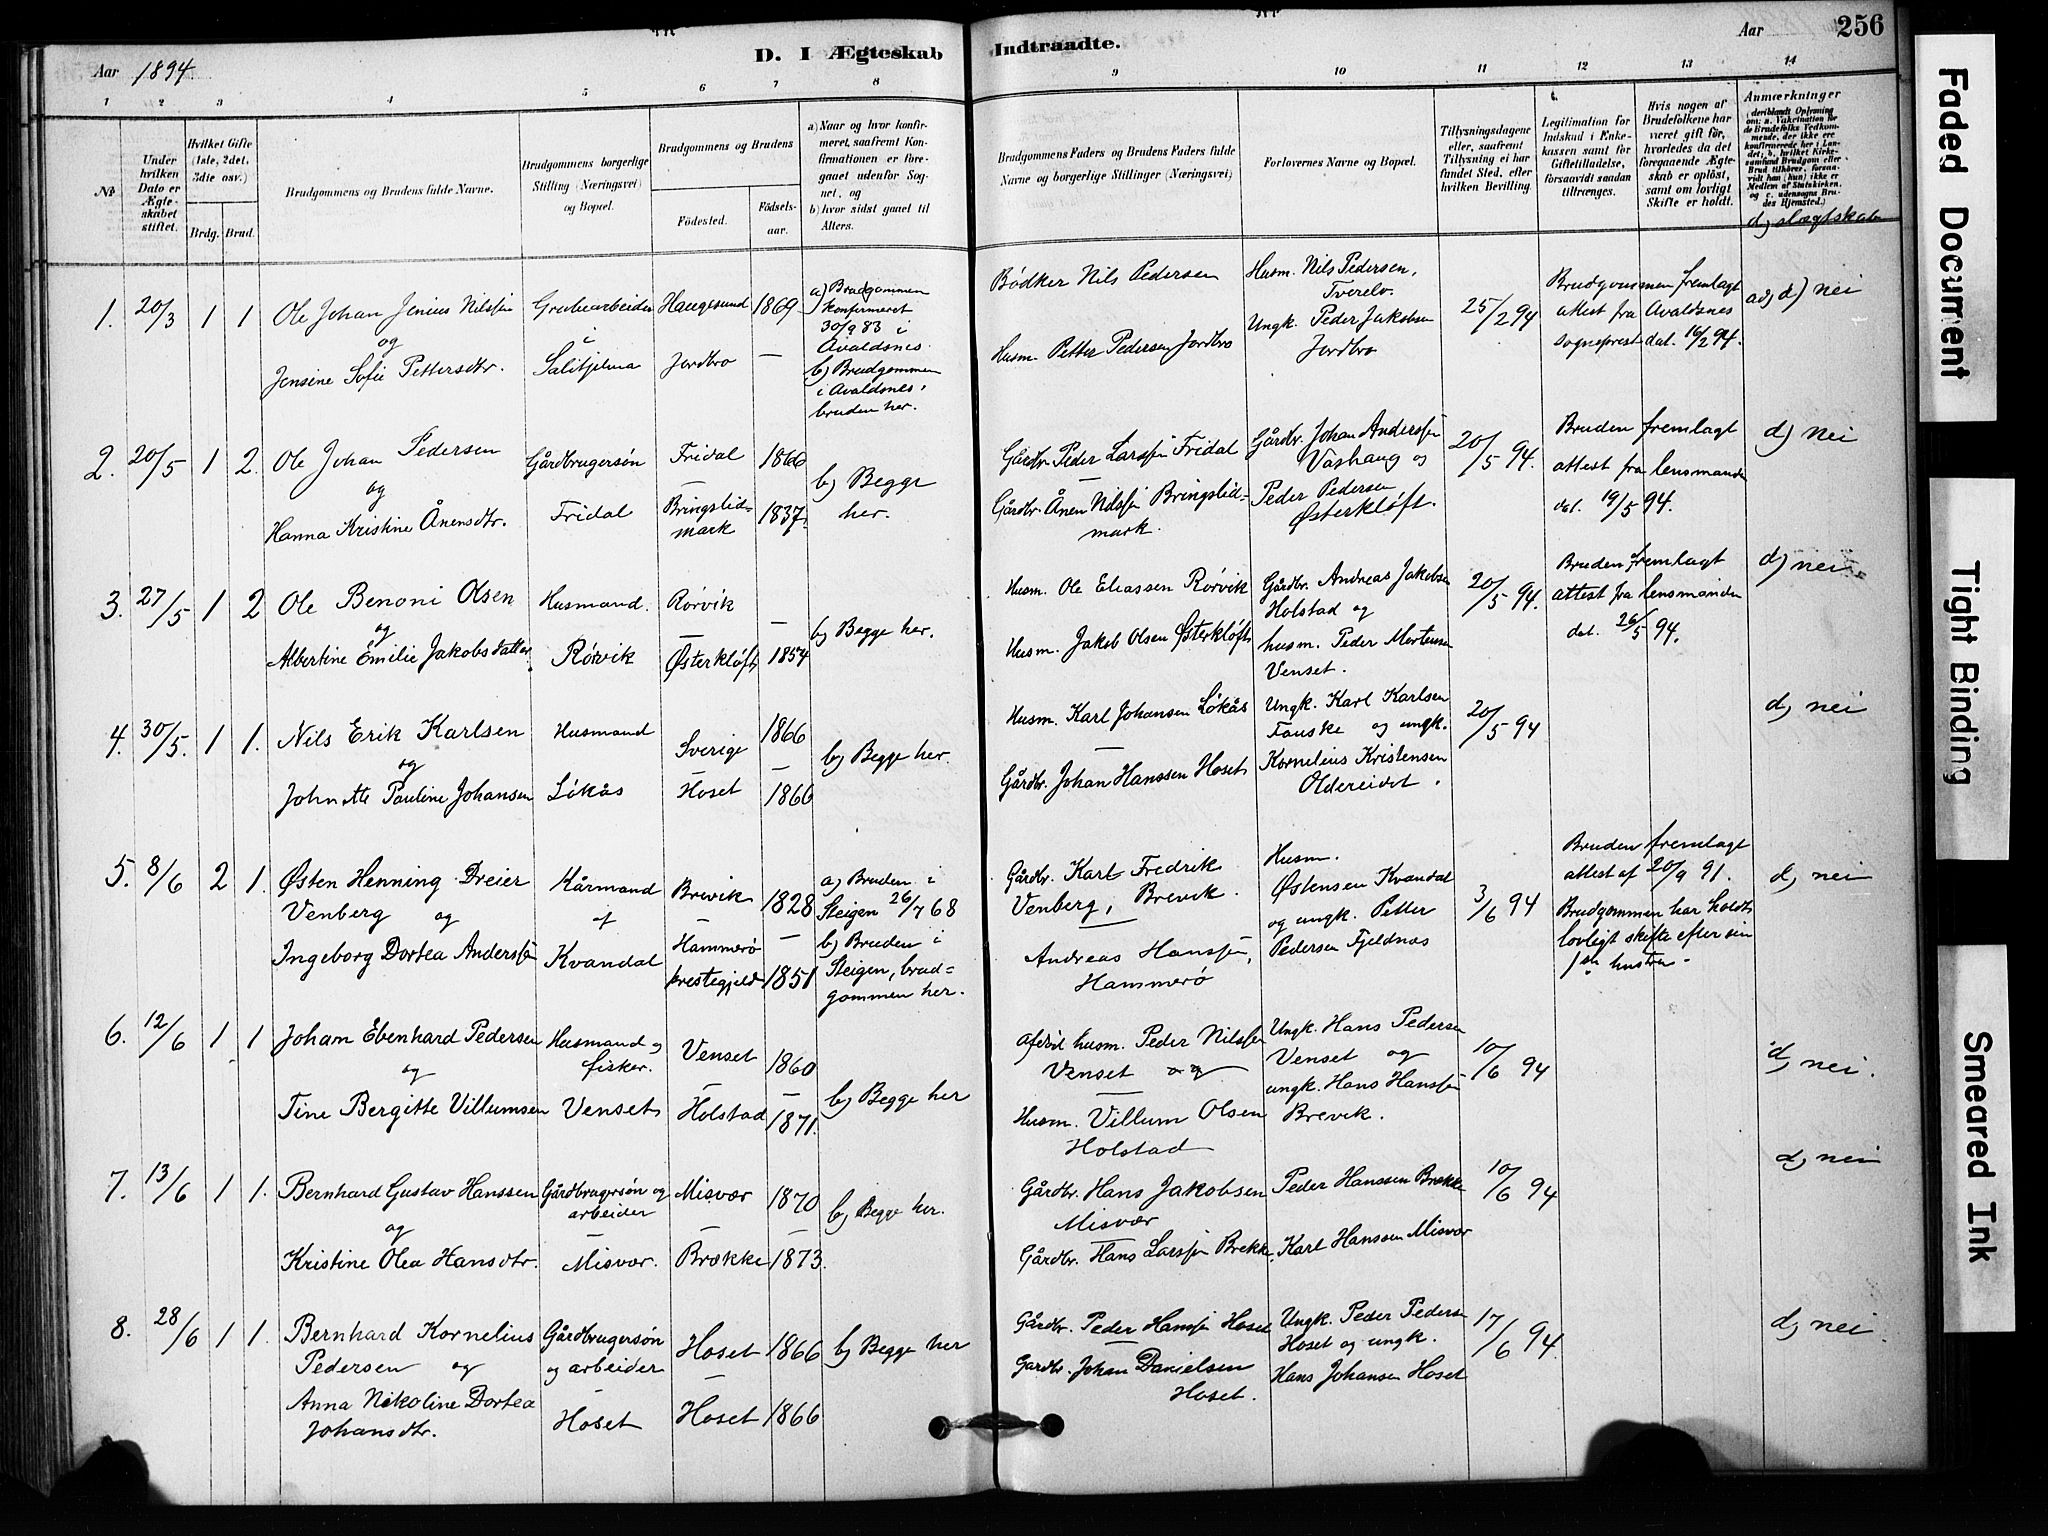 D. I Ægteskab Indtraadte.
Aar 1894.
Aar
256
1 2 3 4 5 6 7 8 9 10 11 12 13 14
№
Under hvilken Dato er Ægteskabet stiftet.
Hvilket Gifte (1ste, 2det, 3dte osv.)
Brdg. Brud.
Brudgommens og Brudens fulde Navne.
Brudgommens borgerlige Stilling (Næringsvei) og Bopæl.
Brudgommens og Brudens
Fødested.
Fødselsaar.
a) Naar og hvor konfirmeret, saafremt Konfirmationen er foregaaet udenfor Sognet, og
b) hvor sidst gaaet til Alters.
Brudgommens Faders og Brudens Faders fulde Navne og borgerlige Stillinger (Næringsvei)
Forlovernes Navne og Bopæl.
Tillysningsdagene eller, saafremt Tillysning ei har fundet Sted, efter hvilken Bevilling.
Legitimation for Indskud i Enkekassen samt for Giftetilladelse, forsaavidt saadan tiltrænges.
Hvis nogen af Brudefolkene har været gift før, hvorledes da det foregaaende Ægteskab er opløst, samt om lovligt Skifte er holdt.
Anmærkninger
d) slægtskab
1. 20/3 1 1
Ole Johan Jenius Nilssen
og
Jensine Sofie Pettersdtr.
Grubearbeider
i
Sulitjelma
Haugesund 1869
Jordbro —
a) Brudgommen
konfirmeret
30/9 83 i
Avaldsnes.
b) Brudgommen
i Avaldsnes,
bruden her.
Bødker Nils Pedersen
Husm. Petter Pedersen Jordbro
Husm. Nils Pedersen,
Tverelv.
Ungk. Peder Jakobsen
Jordbro
25/2 94
Brudgommen fremlagt
attest fra Avaldsnes
sogneprest dat. 16/2 94.
a), d) nei
2. 20/5 1 2.
Ole Johan Pedersen
og
Hanna Kristine Ånensdtr.
Gårdbrugersøn
Fridal
Fridal 1866
—
Bringslid-
mark 1837.
b) Begge
her.
Gårdbr. Peder Larssen Fridal
—
Gårdbr. Ånen Nilssen Bringslid-
mark.
Gårdbr. Johan Anderssen
Vashaug og
Peder Pedersen
Østerkløft.
20/5 94.
Bruden fremlagt
attest fra lensmanden
dat. 19/5 94.
d) nei
3. 27/5 1 2
Ole Benoni Olsen
og
Albertine Emilie Jakobsdatter.
Husmand.
Rørvik
Rørvik —
—
Østerkløft 1854
b) Begge her.
Husm. Ole Eliassen Rørvik
Husm. Jakob Olsen Østerkløft
Gårdbr. Andreas Jakobsen
Holstad og
husm. Peder Mortensen
Venset.
20/5 94.
Bruden fremlagt
attest fra lensmanden
dat. 26/5 94.
d) nei
4. 30/5. 1 1.
Nils Erik Karlsen
og
Johnette Pauline Johansen
Husmand
Løkås
Sverige 1866
—
Hoset 1866
b) Begge her.
Husm. Karl Johansen Løkås
—
Gårdbr. Johan Hanssen Hoset
Ungk. Karl Karlsen
Fauske og ungk.
Kornelius Kristensen
Oldereidet.
20/5 94
d) nei
5. 8/6 2 1.
Østen Henning Dreier
Venberg og
Ingeborg Dortea Anderssen
Kårmand
af
Kvandal
Brevik 1828
—
Hammerø
prestegjeld 1851
a) Bruden i
Steigen 26/7 68
b) Bruden i
Steigen, brud=
gommen her.
Gårdbr. Karl Fredrik
Venberg, Brevik.
—
Andreas Hanssen,
Hammerø
Husm.
Østensen Kvandal
og ungk. Petter
Pedersen Fjeldnæs
3/6 94
Bruden fremlagt
attest af 20/9 91.
Brudgommen har holdt
lovligt skifte efter sin
hustru.
d) nei
6. 12/6 1 1
Johan Ebenhard Pedersen
og
Tine Bergitte Villumsen
Husmand og
fisker.
Venset
Venset 1860
—
Holstad 1871.
b) Begge her
Husm. Peder Nilssen
Venset og
—
Husm. Villum Olsen
Holstad
Ungk. Hans Pedersen
Venset og
ungk. Hans Hanssen
Brevik.
10/6 94
d) nei.
7. 13/6 1 1.
Bernhard Gustav Hanssen
og
Kristine Olea Hansdtr.
Gårdbrugersøn og
arbeider
—
Misvær.
Misvær 1870
—
Brække 1873.
b) Begge her.
Gårdbr. Hans Jakobsen
Misvær
—
Gårdbr. Hans Larssen Brekke
Peder Hanssen Brekke
Karl Hanssen Misvær
10/6 94
d) nei
8. 28/6 1 1.
Bernhard Kornelius
Pedersen og
Anna Nikoline Dortea
Johansdtr.
Gårdbrugersøn
og arbeider
—
Hoset
Hoset 1866
—
Hoset 1866
b) Begge her
Gårdbr. Peder Hanssen Hoset
Gårdbr. Johan Danielsen
Hoset.
Ungk. Peder Pedersen
Hoset og ungk.
Hans Johansen Hoset
17/6 94.
d) nei
Faded Document
Tight Binding
Smeared Ink